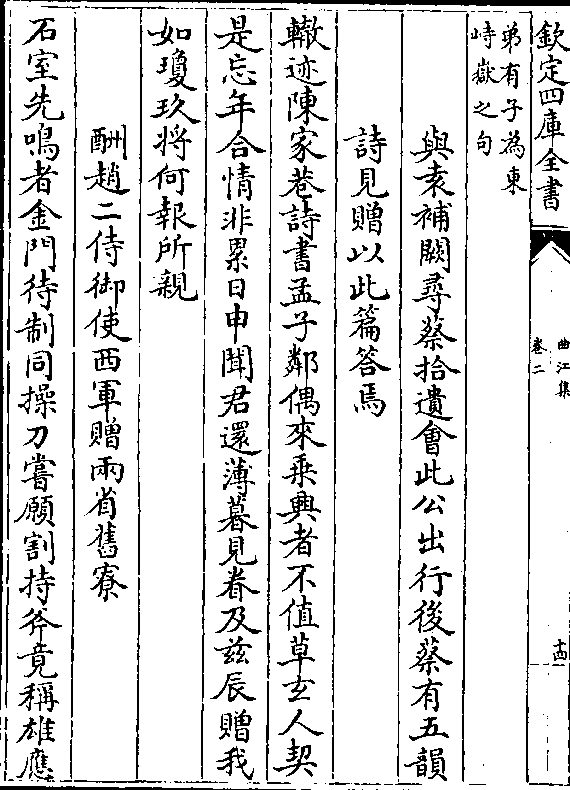 欽定四庫全書
曲江集
卷二
十四
弟有子為東
峙嶽之句
與袁補闕尋蔡拾遺會此公出行後蔡有五韻
詩見贈以此篇答焉
轍迹陳家巷詩書孟子鄰偶來乘興者不值草玄人契
是忘年合情非累日申聞君還薄暮見眷及兹辰贈我
如瓊玖將何報所親
酬趙二侍御使西軍贈兩省舊寮
石室先鳴者金門待制同操刀嘗願割持斧竟稱雄應